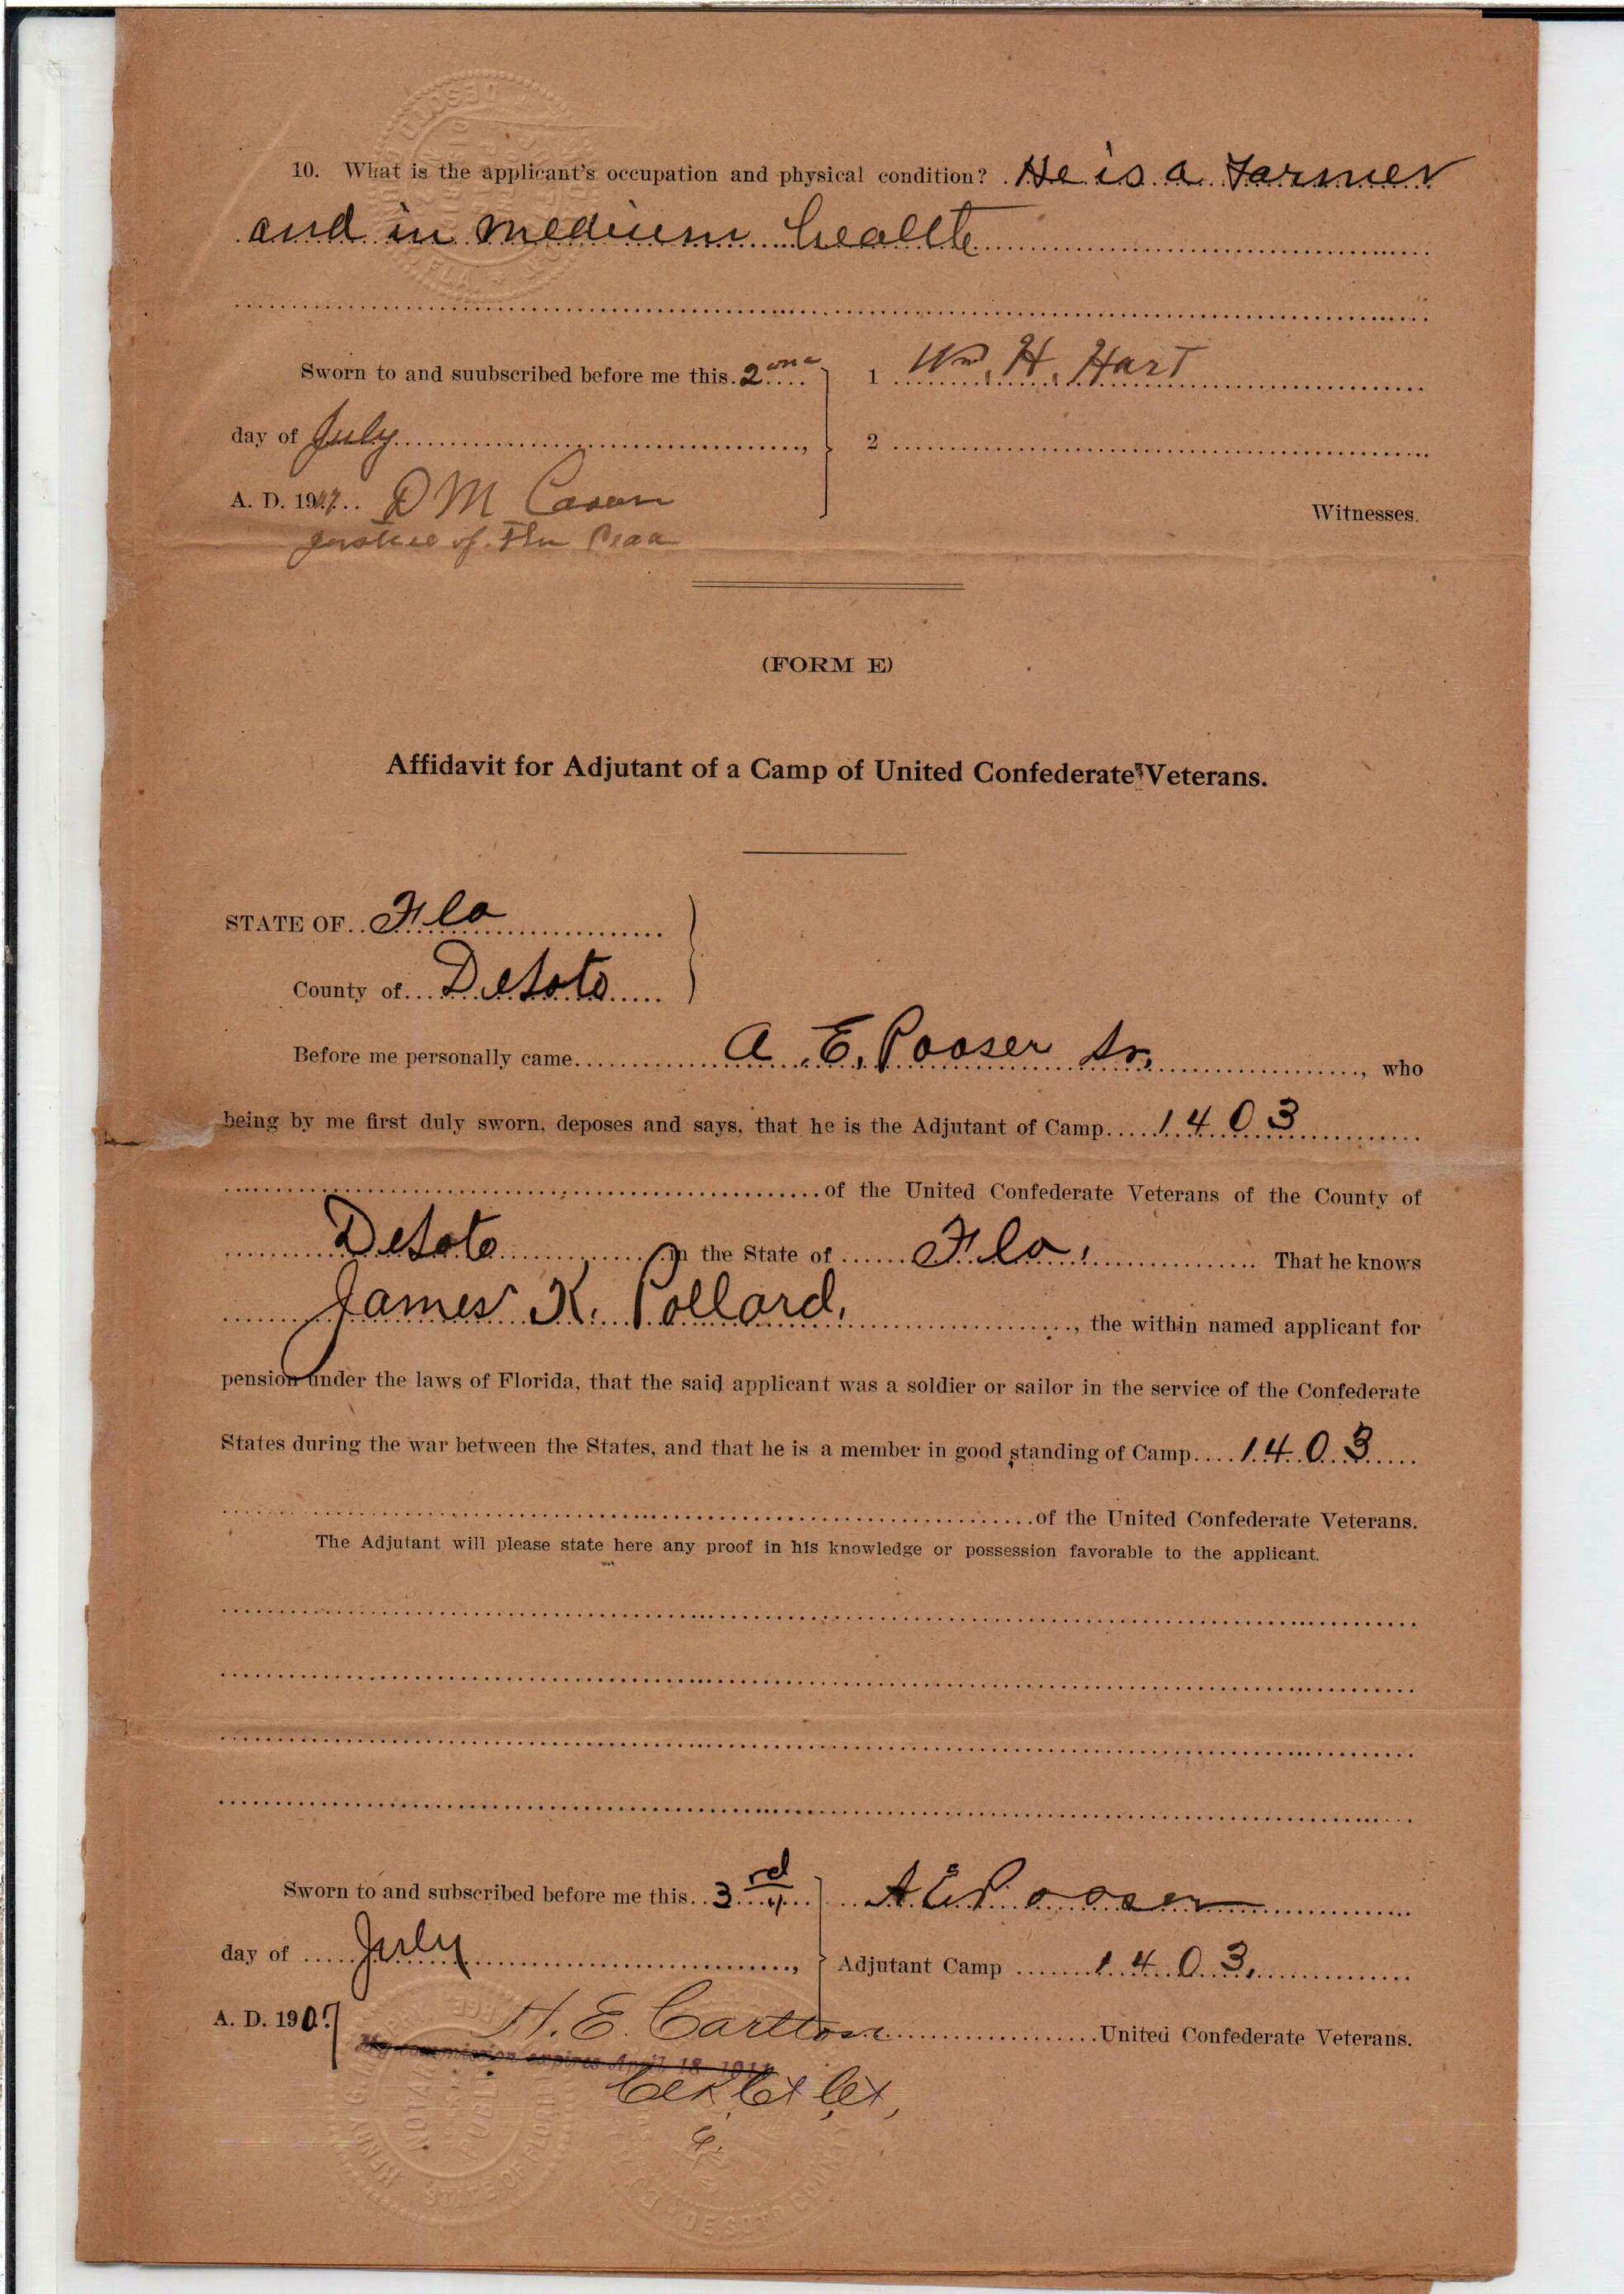 10. What is the applicant's occupation and physical condition? He is a Farmer
and in medium health
Sworn to and suubscribed before me this 2 1 Wm. H. Hart
day of July, 2
A. D. 1907. D M
Justice of The
Witnesses.
(FORM E)
Affidavit for Adjutant of a Camp of United Confederate Veterans.
STATE OF Fla
County of DeSoto
Before me personally came A. E. Pooser Sr., who
being by me first duly sworn, deposes and says, that he is the Adjutant of Camp 1403
of the United Confederate Veterans of the County of
DeSoto in the State of Fla. That he knows
James K. Pollard, the within named applicant for
pension under the laws of Florida, that the said applicant was a soldier or sailor in the service of the Confederate
States during the war between the States, and that he is a member in good standing of Camp 1403
of the United Confederate Veterans.
The Adjutant will please state here any proof in his knowledge or possession favorable to the applicant.
Sworn to and subscribed before me this 3rd A E Pooser
day of July, Adjutant Camp 1403.
A. D. 1907 H. E. Carlton United Confederate Veterans.
My commission expires April 18 1911
Clk Ct Ct,
NOTARY PUBLIC
STATE OF FLORIDA
DE SOTO COUNTY